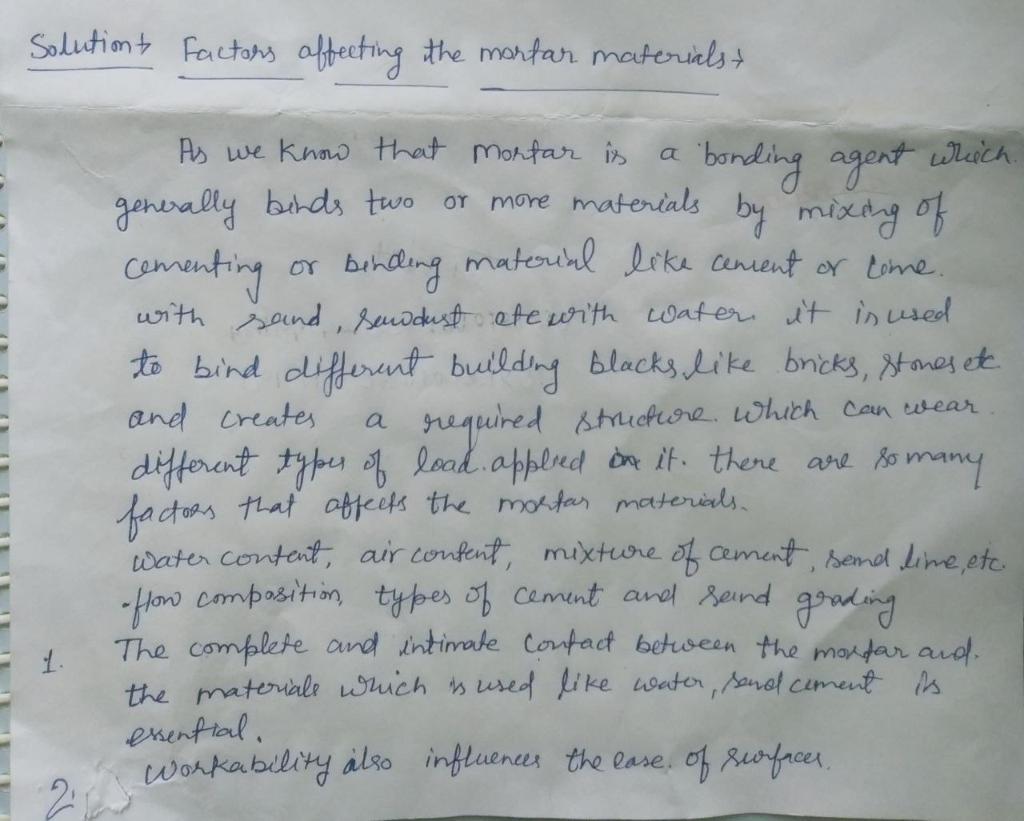 Solution→ Factors affecting the mortar materials→
As we know that mortar is a bonding agent which
generally binds two or more materials by mixing of
cementing or binding material like cement or lime.
with sand, sawdust etc with water. it is used
to bind different building blacks like bricks, stones etc
and creates a required structure. which can wear
different types of load applied on it. there are so many
factors that affects the mortar materials.
Water content, air content, mixture of cement, send lime, etc.
-flow composition, types of cement and sand grading
1. The complete and intimate contact between the mortar and.
the materials which is used like water, sand cement is
essential.
2. Workability also influences the ease. of surfaces.